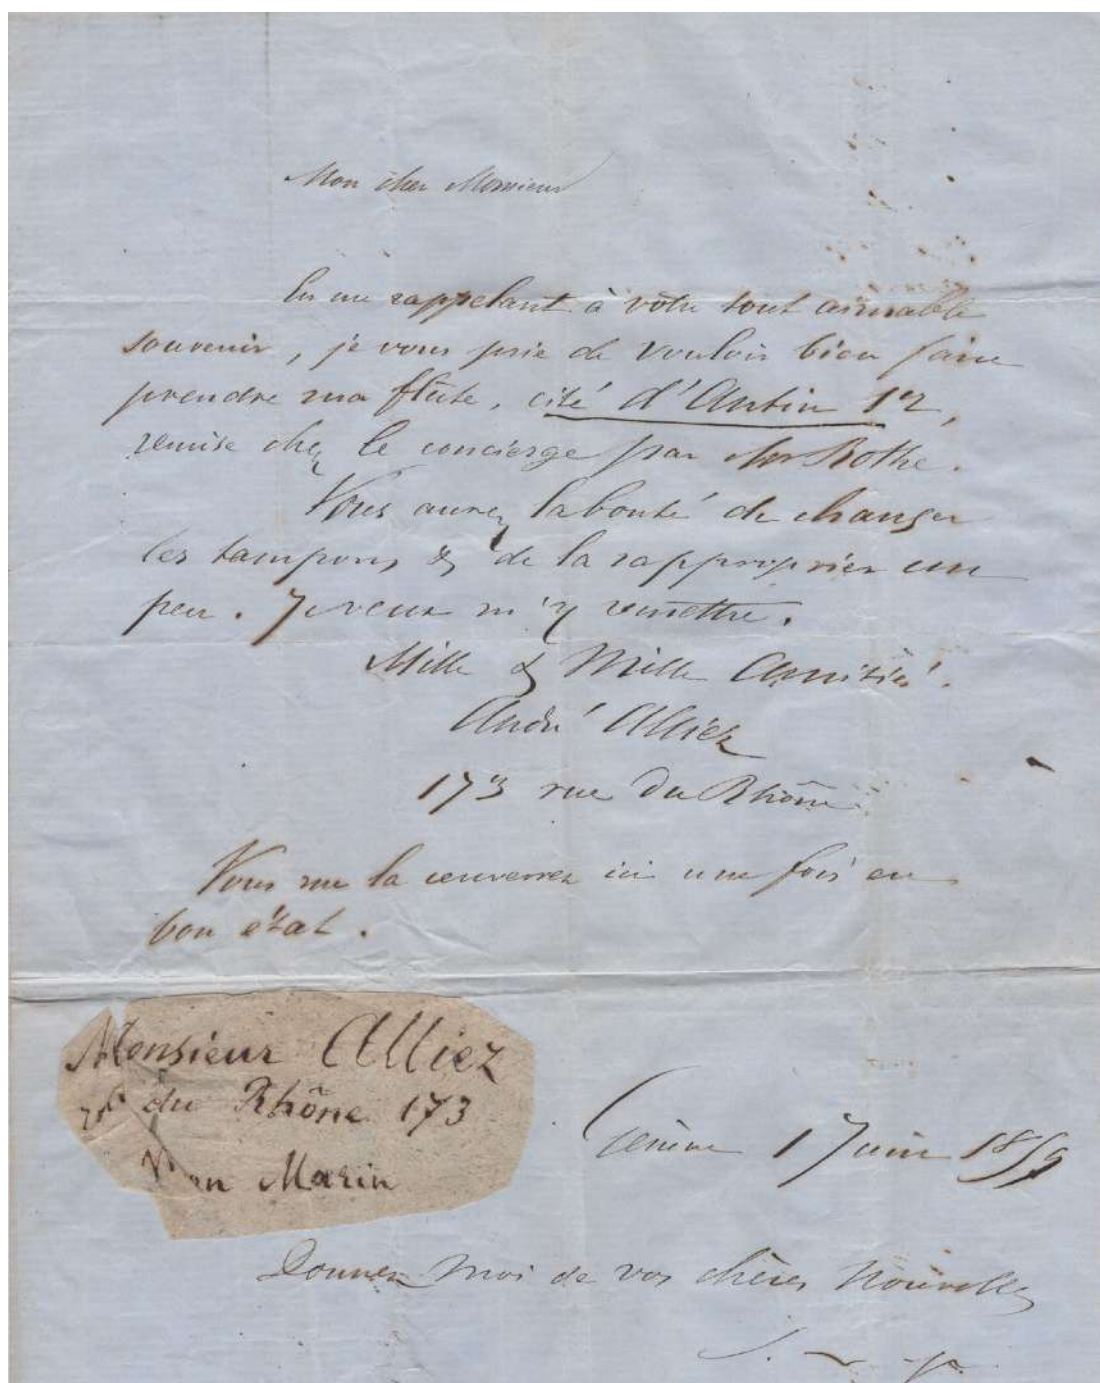 Mon cher Monsieur
En me rappelant à vôtre tout aimable
souvenir, je vous prie de vouloir bien faire
prendre ma flûte, cité d'Antin 12,
remise chez le concierge par Mr Rothe.
Vous aurez la bonté de changer
les tampons & de la rapproprier un
peu. Je veux m'y remettre.
Mille & Mille Amitiés.
André Alliez
173 rue du Rhône
Vous me la renverrez ici une fois en
bon état.
Monsieur Alliez
du Rhône 173
Marin
Genève 1 Juin 1859
Donnez moi de vos chères Nouvelles